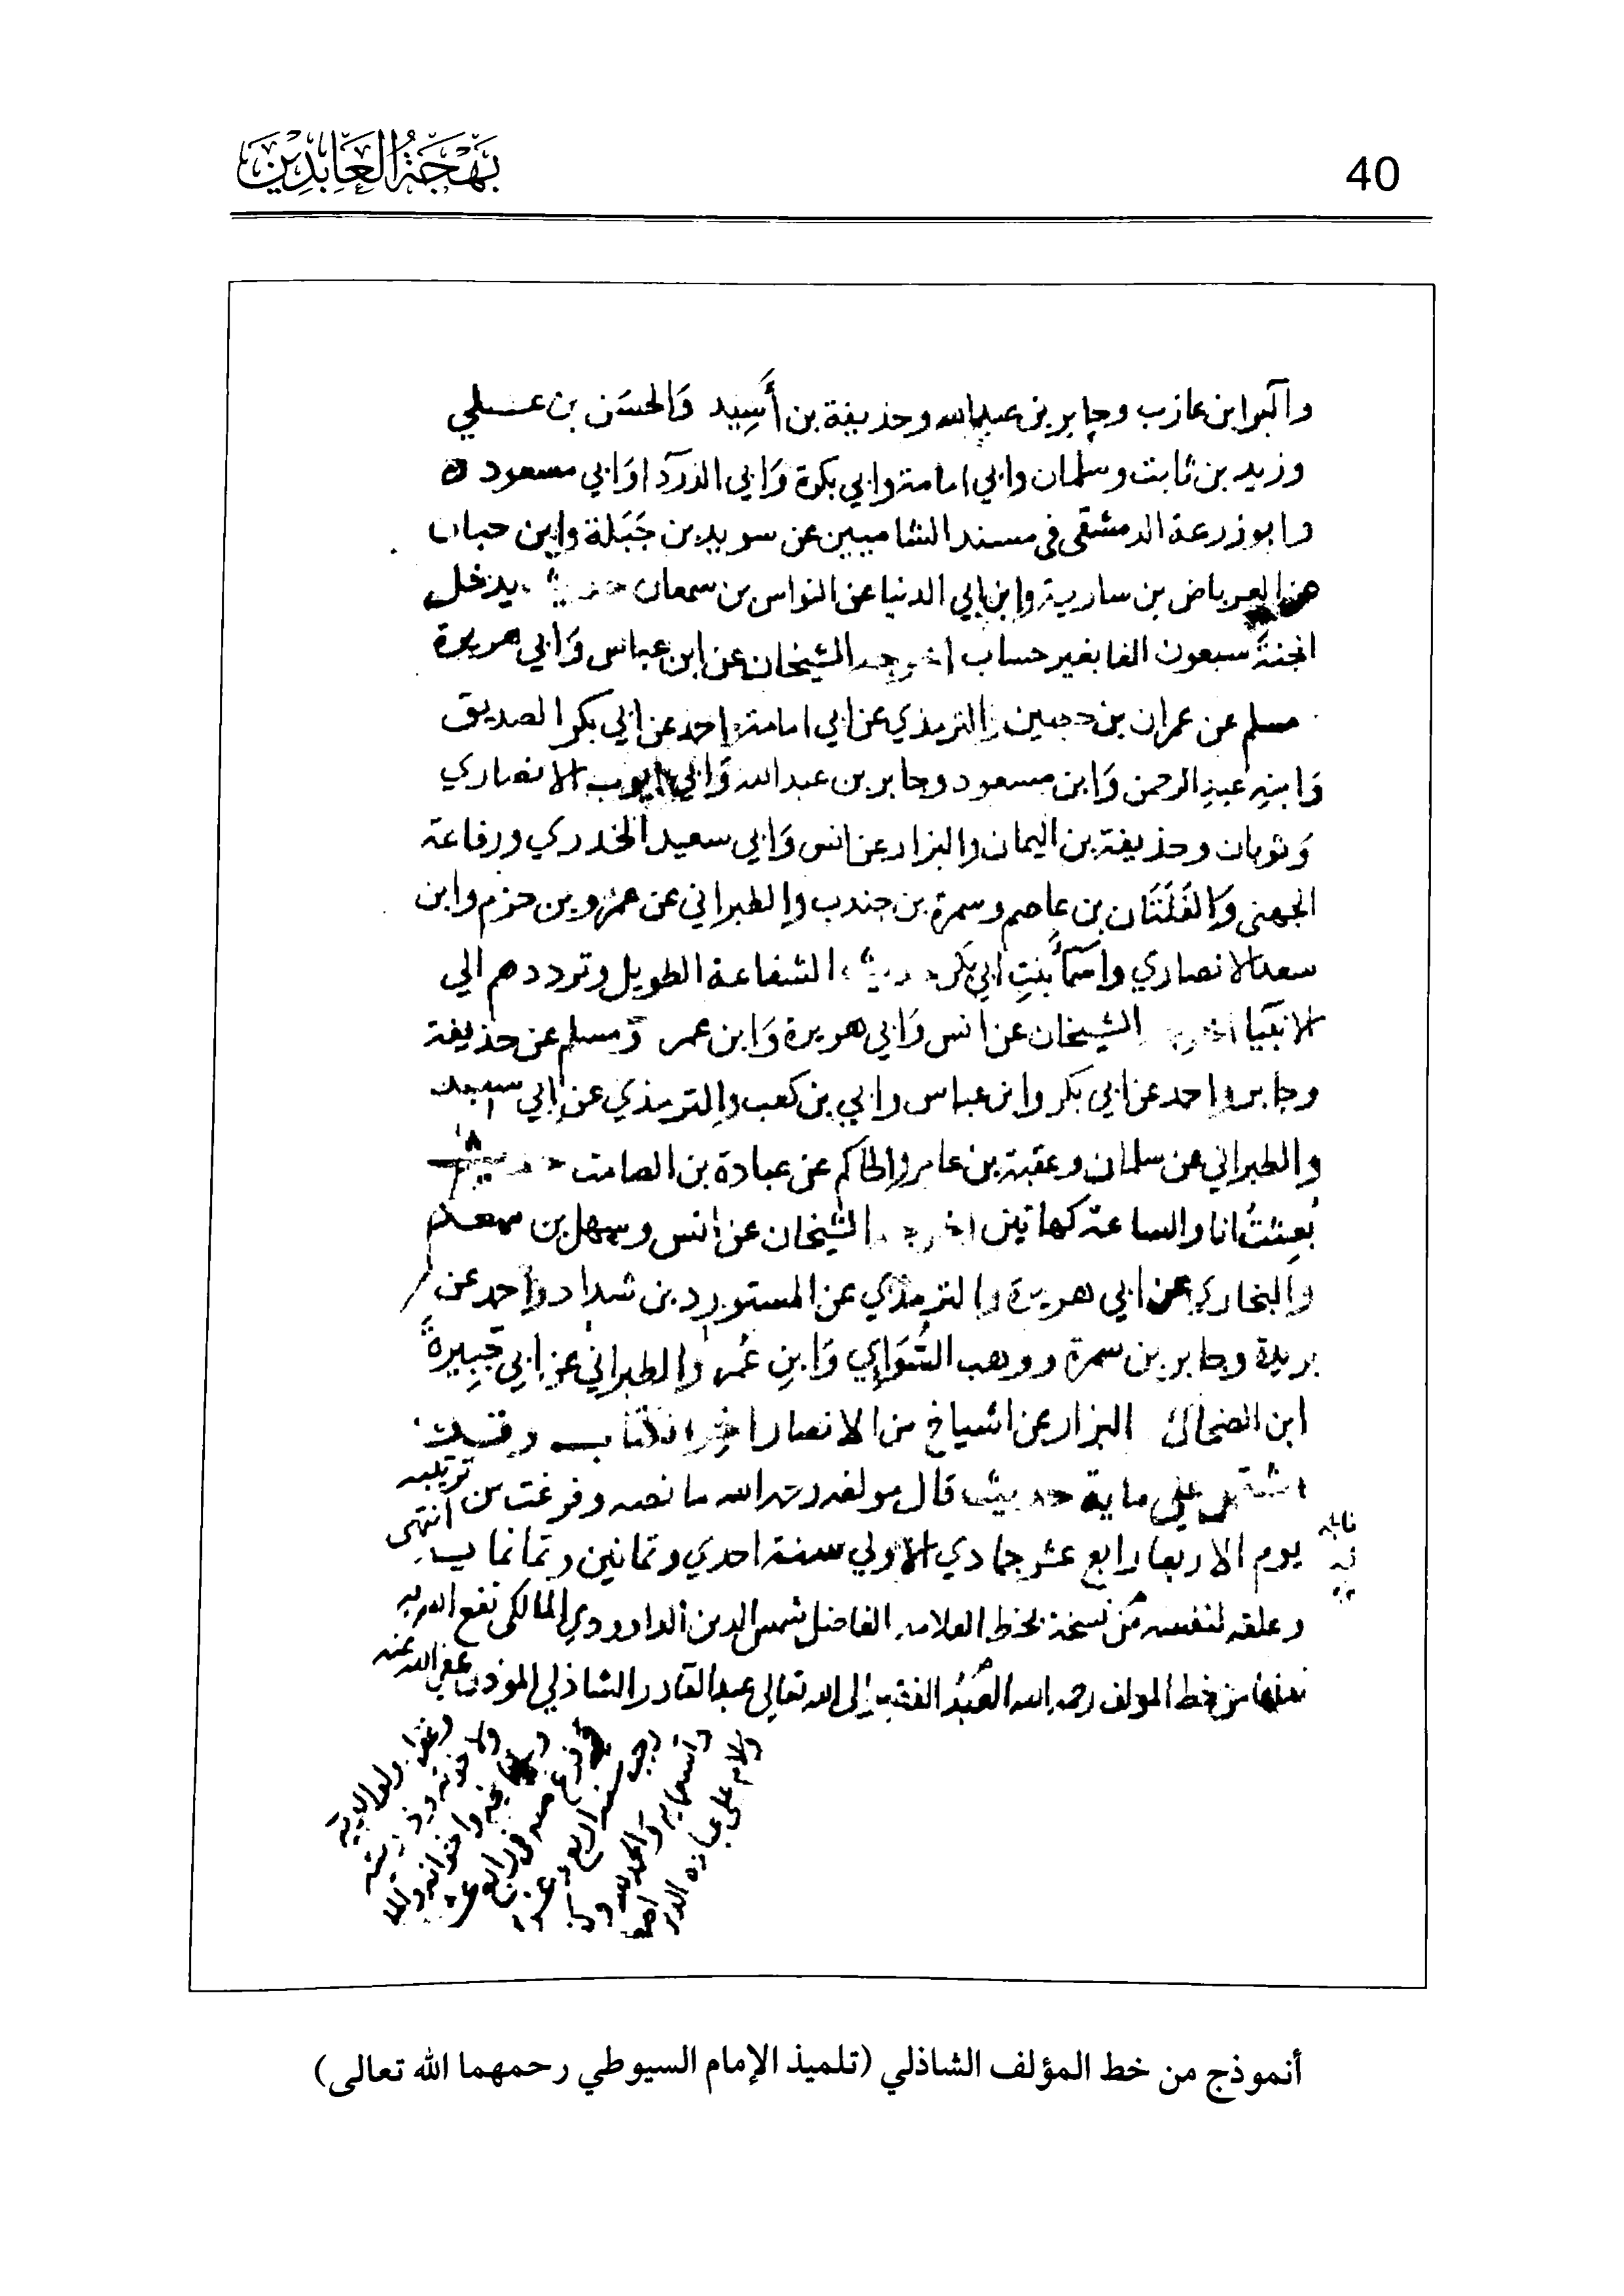 بَهْجَةُ العَابِدِيْن
40
والبرا بن عازب وجابر بن عبدالله وحذيفة بن أَسِيد وَالحسَن بن عــلي
وزيد بن ثابت وسلمان وابي امامة وابي بكرة وَابي الدردَآ وَابي مسعود ه
وابو زرعة الدمشقى في مسند الشاميين عن سويد بن جَبَلة وابن حبان
عن العرباض بن سارية وابن ابي الدنيا عن النواس بن سمعان حديث يدخل
الجنة سبعون الفا بغير حساب اخرجه الشيخان عن ابن عباس وَابي هريرة
مسلم عن عمران بن حصين والترمذي عن ابي امامة واحمد عن ابي بكر الصديق
وَابنِهِ عبدِ الرحمن وَابن مسعود وجابر بن عبد الله وَابي ايوب الانصاري
وَثوبان وحذيفة بن اليمان والبزار عن انس وَابي سعيد الخدري ورفاعة
الجهني وَالفَلَتَان بن عاصم وسمرة بن جندب والطبراني عن عمرو بن حزم وابن
سعد الانصاري واسمآ بنتِ ابي بكر حديث الشفاعة الطويل وترددهم الي
الانبيآ اخرجه الشيخان عن انس وَابي هريرة وَابن عمر وَمسلم عن حذيفة
وجابر واحمد عن ابي بكر وابن عباس وابي بن كعب والترمذي عن ابي سعيد
والطبراني عن سلمان وعقبة بن عامر والحاكم عن عبادة بن الصامت حديث
بُعِثْتُ انا والساعة كهاتين اخرجه الشيخان عن انس وسهل بن سعد
والبخاري عن ابي هريرة والترمذي عن المستورد بن شداد واحمد عن
بريدة وجابر بن سمرة ووهب السُّوَاي وَابنِ عُمر والطبراني عن ابي جَبِيرةَ
ابن الضحاك البزار عن اشياخ من الانصار اخر الكتاب وقد
اشتمل علي ماية حديث قال مولفه رحمه الله ما نصه وفرغت من ترتيبه
يوم الاربعا رابع عشر جمادي الاولي سنة احدي وثمانين وثمانماية انتهى
وعلقه لنفسه من نسخة بخط العلامه الفاضل شمس الدين الداوودي المالكى نفع الله به
نقلها من خط المولف رحمه الله العَبْدُ الفقير إلى الله تعالى عبد القادر الشاذلي الموذن عفى الله عنه
وغفر له ولوالديه
أنموذج من خط المؤلف الشاذلي (تلميذ الإمام السيوطي رحمهما الله تعالى)